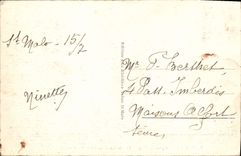 St Malo - 15/2
Ninette
Mr F. Berthet
4 Patt. Imberdis
Maisons Alfort
Seine